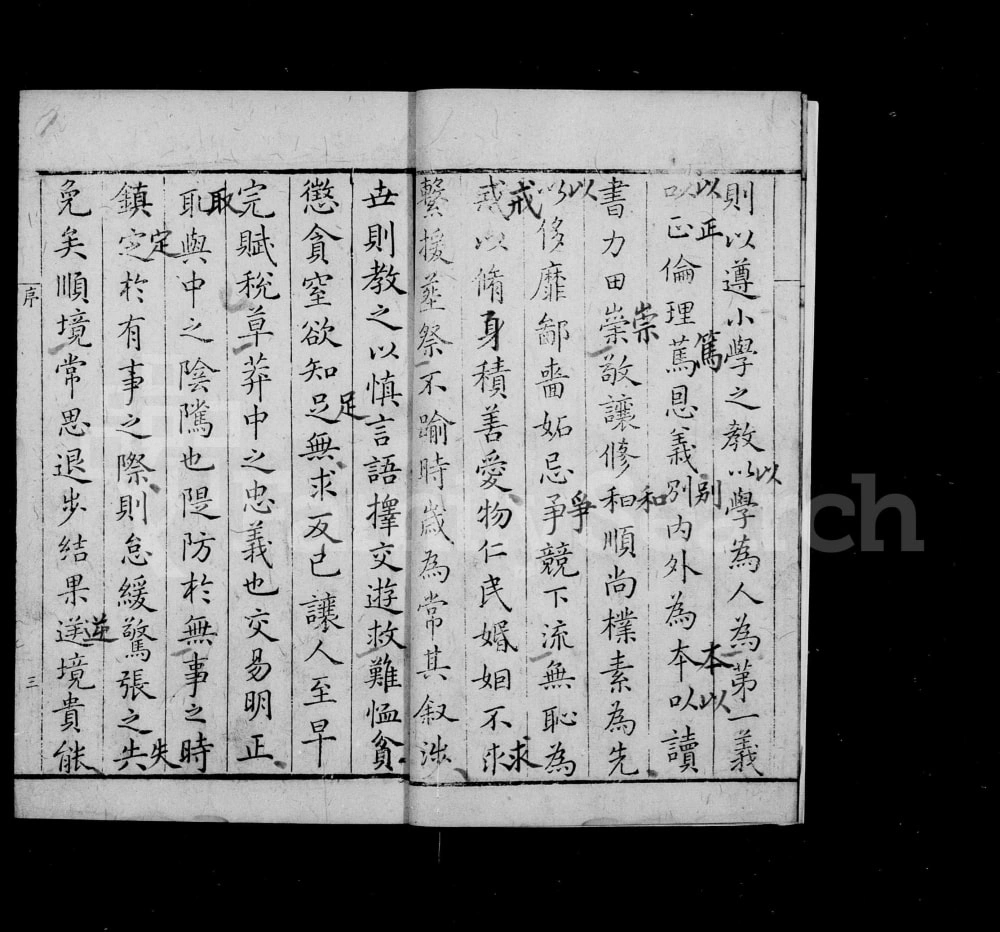 則以遵小學之教以學為人為第一義
以正倫理篤恩義別內外為本以讀
書力田崇敬讓修和順尚樸素為先
以侈靡鄙嗇妬忌爭競下流無恥為
戒以脩身積善愛物仁民婚姻不求
繫援塟祭不踰時歲為常其叙涉
世則教之以慎言語擇交遊救難恤貧
懲貪窒欲知足無求反已讓人至早
完賦稅草莽中之忠義也交易明正
取與中之陰隲也隄防於無事之時
鎮定於有事之際則怠緩驚張之失
免矣順境常思退步結果逆境貴能
以
以
正
篤
別
本
以
崇
和
以
爭
戒
求
足
取
定
失
逆
序
三